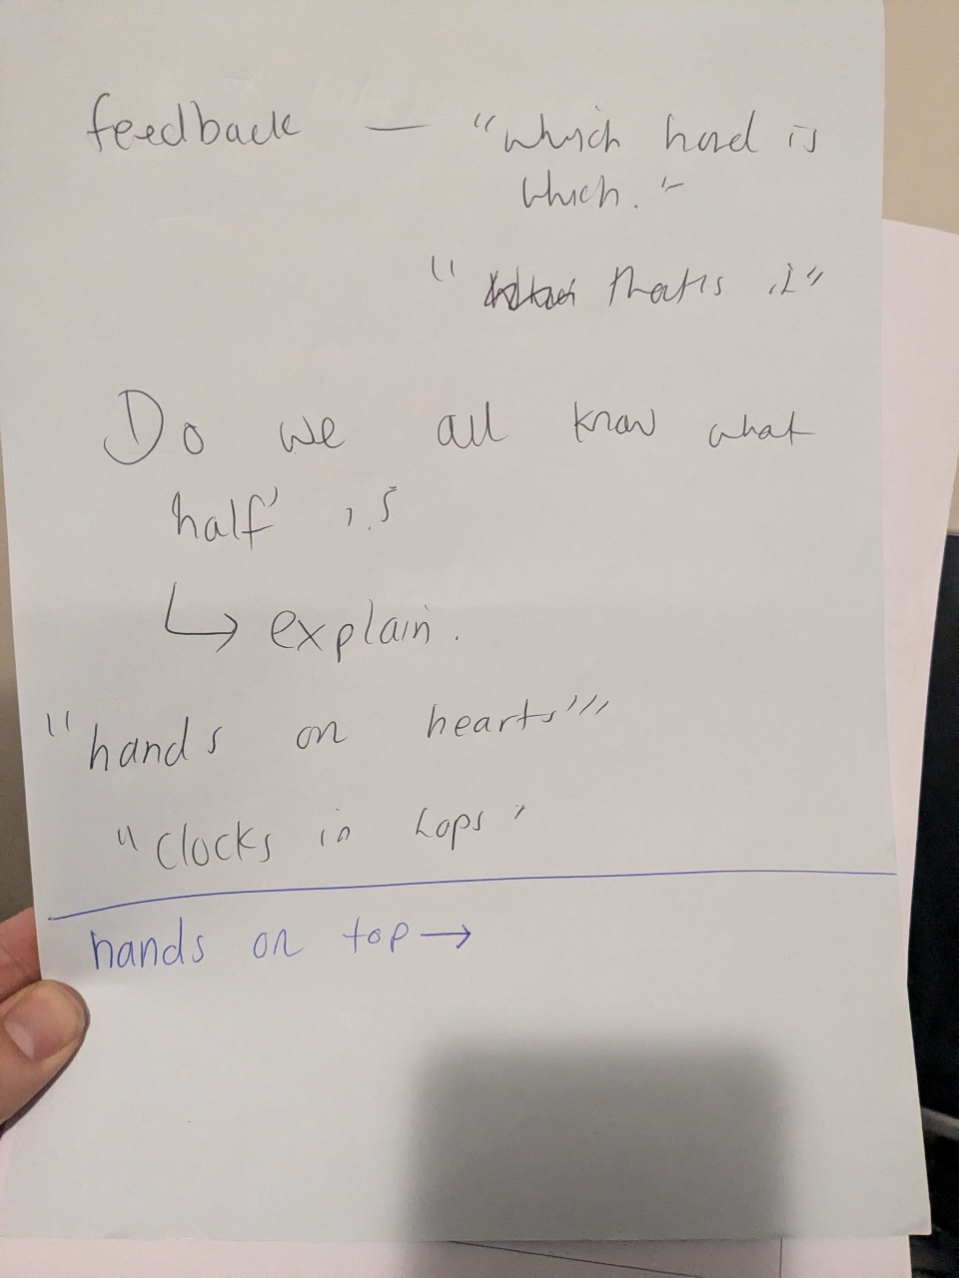 feedback — "which hand is
which."
" that's it"
Do we all know what
half' is
↳ explain.
"hands on hearts"'
"clocks in laps'
hands on top →